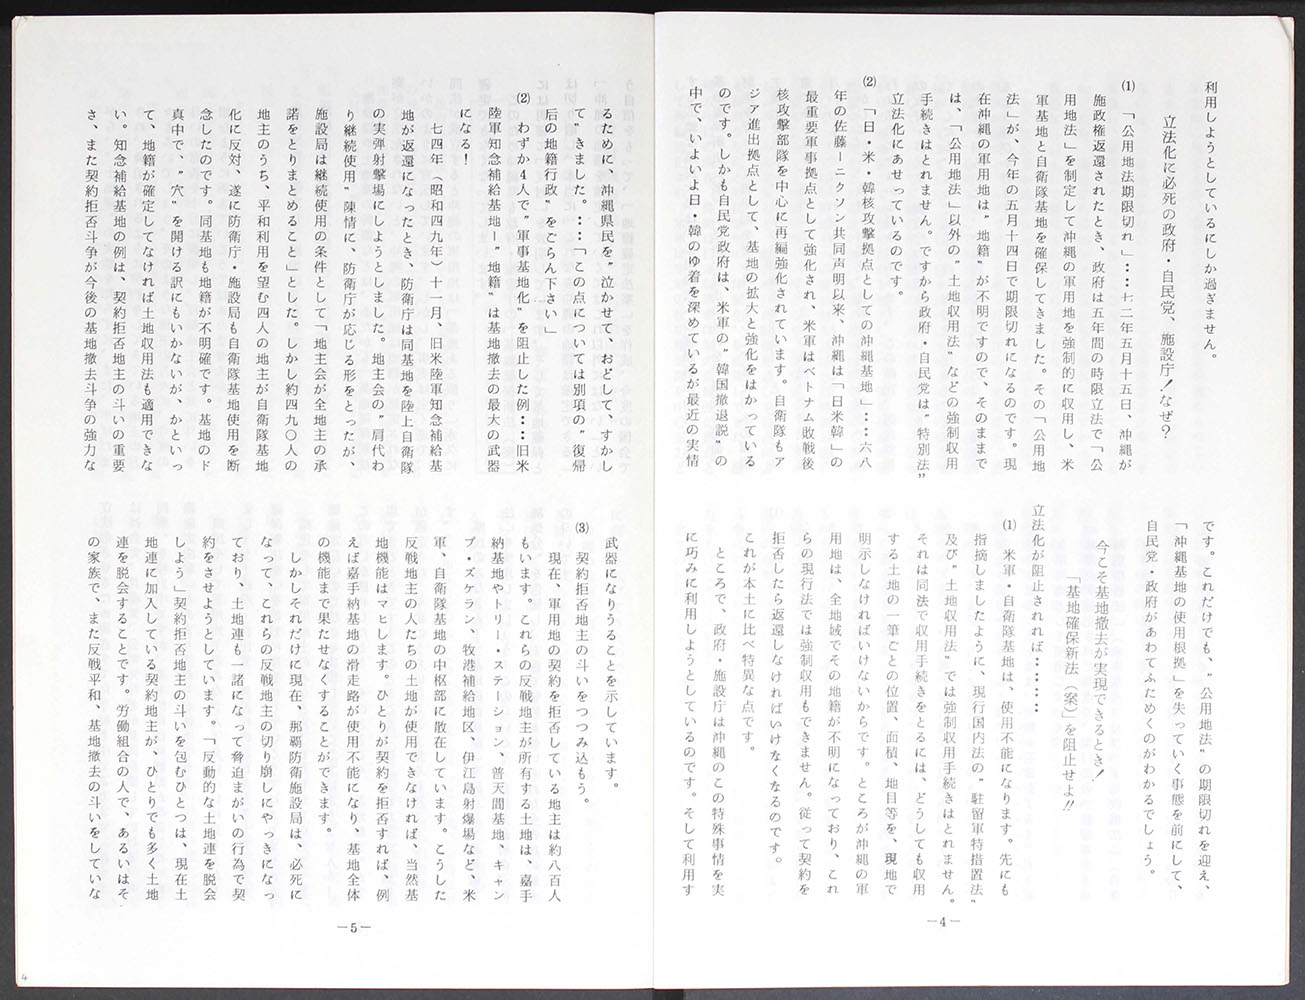 利用しようとしているにしか過ぎません。
立法化に必死の政府・自民党、施設庁！なぜ？
(1) 「公用地法期限切れ」：：七二年五月十五日、沖縄が
施政権返還されたとき、政府は五年間の時限立法で「公
用地法」を制定して沖縄の軍用地を強制的に収用し、米
軍基地と自衛隊基地を確保してきました。その「公用地
法」が、今年の五月十四日で期限切れになるのです。現
在沖縄の軍用地は〝地籍〟が不明ですので、そのままで
は、「公用地法」以外の〝土地収用法〟などの強制収用
手続きはとれません。ですから政府・自民党は〝特別法〟
立法化にあせっているのです。
(2) 「日・米・韓核攻撃拠点としての沖縄基地」：：六八
年の佐藤ーニクソン共同声明以来、沖縄は「日米韓」の
最重要軍事拠点として強化され、米軍はベトナム敗戦後
核攻撃部隊を中心に再編強化されています。自衛隊もア
ジア進出拠点として、基地の拡大と強化をはかっている
のです。しかも自民党政府は、米軍の〝韓国撤退説〟の
中で、いよいよ日・韓のゆ着を深めているが最近の実情
です。これだけでも、〝公用地法〟の期限切れを迎え、
「沖縄基地の使用根拠」を失っていく事態を前にして、
自民党・政府があわてふためくのがわかるでしょう。
今こそ基地撤去が実現できるとき！
「基地確保新法（案）」を阻止せよ!!
立法化が阻止されれば：：：
(1) 米軍・自衛隊基地は、使用不能になります。先にも
指摘しましたように、現行国内法の〝駐留軍特措置法〟
及び〝土地収用法〟では強制収用手続きはとれません。
それは同法で収用手続きをとるには、どうしても収用
する土地の一筆ごとの位置、面積、地目等を、現地で
明示しなければいけないからです。ところが沖縄の軍
用地は、全地域でその地籍が不明になっており、これ
らの現行法では強制収用もできません。従って契約を
拒否したら返還しなければいけなくなるのです。
これが本土に比べ特異な点です。
ところで、政府・施設庁は沖縄のこの特殊事情を実
に巧みに利用しようとしているのです。そして利用す
—4—
るために、沖縄県民を〝泣かせて、おどして、すかし
て〟きました。：：「この点については別項の〝復帰
后の地籍行政〟をごらん下さい」
(2) わずか4人で〝軍事基地化〟を阻止した例：：旧米
陸軍知念補給基地ー〝地籍〟は基地撤去の最大の武器
になる！
七四年（昭和四九年）十一月、旧米陸軍知念補給基
地が返還になったとき、防衛庁は同基地を陸上自衛隊
の実弾射撃場にしようとしました。地主会の〝肩代わ
り継続使用〟陳情に、防衛庁が応じる形をとったが、
施設局は継続使用の条件として「地主会が全地主の承
諾をとりまとめること」とした。しかし約四九〇人の
地主のうち、平和利用を望む四人の地主が自衛隊基地
化に反対、遂に防衛庁・施設局も自衛隊基地使用を断
念したのです。同基地も地籍が不明確です。基地のド
真中で、〝穴〟を開ける訳にもいかないが、かといっ
て、地籍が確定してなければ土地収用法も適用できな
い。知念補給基地の例は、契約拒否地主の斗いの重要
さ、また契約拒否斗争が今後の基地撤去斗争の強力な
武器になりうることを示しています。
(3) 契約拒否地主の斗いをつつみ込もう。
現在、軍用地の契約を拒否している地主は約八百人
もいます。これらの反戦地主が所有する土地は、嘉手
納基地やトリー・ステーション、普天間基地、キャン
プ・ズケラン、牧港補給地区、伊江島射爆場など、米
軍、自衛隊基地の中枢部に散在しています。こうした
反戦地主の人たちの土地が使用できなければ、当然基
地機能はマヒします。ひとりが契約を拒否すれば、例
えば嘉手納基地の滑走路が使用不能になり、基地全体
の機能まで果たせなくすることができます。
しかしそれだけに現在、那覇防衛施設局は、必死に
なって、これらの反戦地主の切り崩しにやっきになっ
ており、土地連も一諸になって脅迫まがいの行為で契
約をさせようとしています。「反動的な土地連を脱会
しよう」契約拒否地主の斗いを包むひとつは、現在土
地連に加入している契約地主が、ひとりでも多く土地
連を脱会することです。労働組合の人で、あるいはそ
の家族で、また反戦平和、基地撤去の斗いをしていな
—5—
4